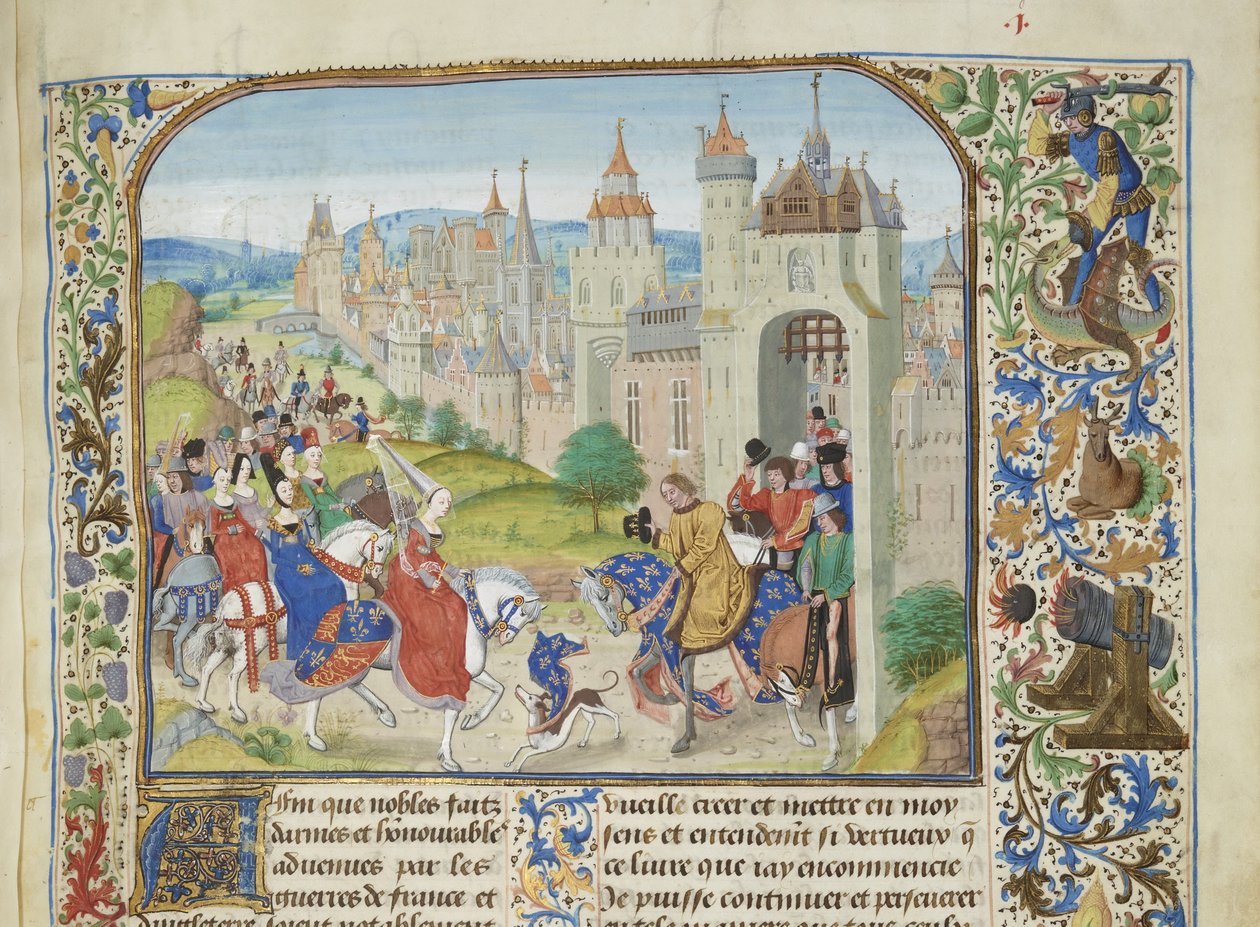 .j.
Affin que nobles faitz
darmes et hōnourables
advenues par les
guerres de france et
dangleterre soient notablement
vueille creer et mettre en moy
sens et entendemt̄ si vertueux q̄
ce livre que iay encommencie
Je puisse continuer et perseverer
en tele maniere que tous ceulx